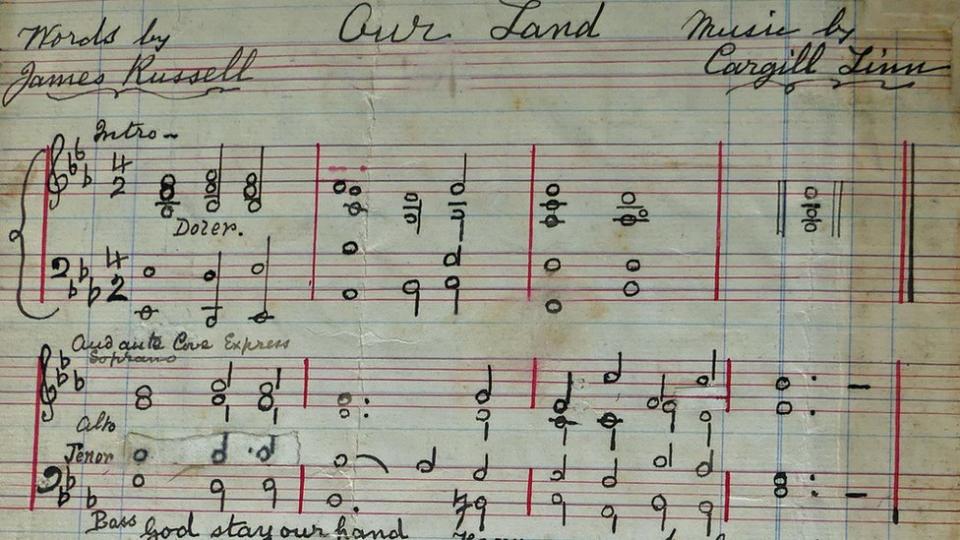 Our Land
Words by
James Russell
Music by
Cargill Linn
Intro
4
2
Dozer.
4
2
Andante Con Express
Soprano
Alto
Tenor
Bass
God stay our hand